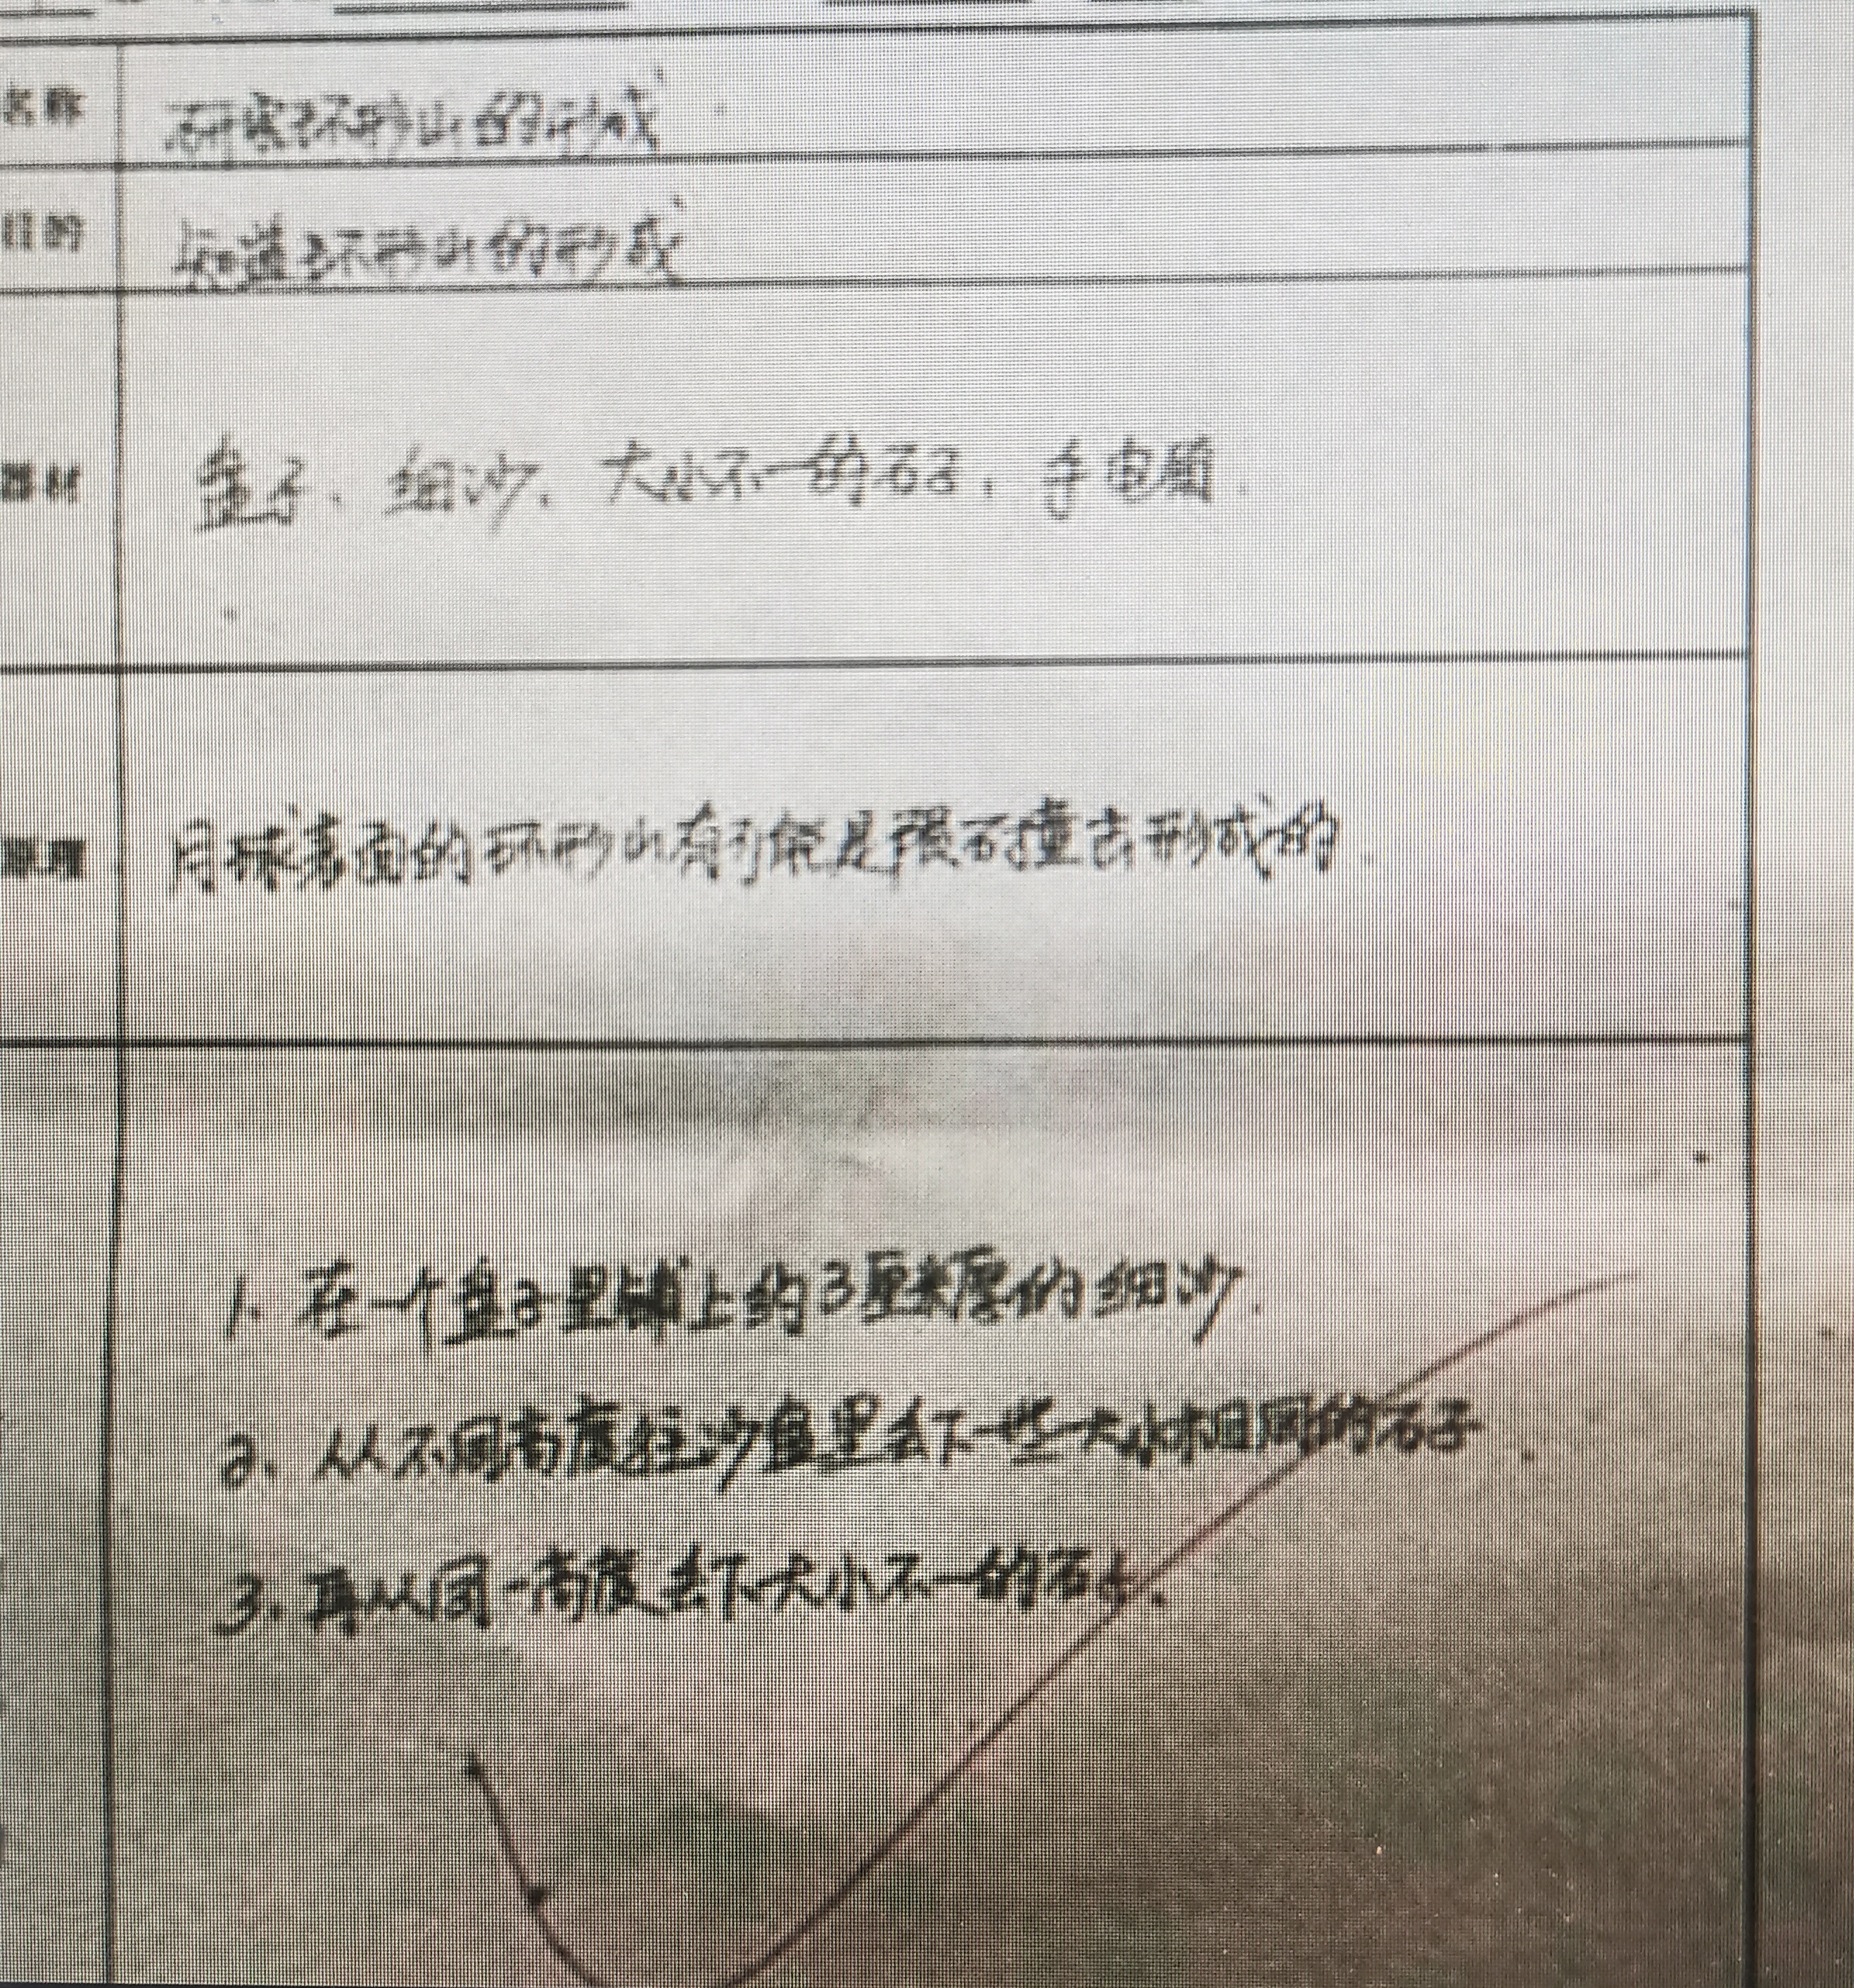 名称 研究环形山的形成
目的 知道环形山的形成
器材 盘子、细沙、大小不一的石子、手电筒.
原理 月球表面的环形山有可能是陨石撞击形成的.
1. 在一个盘子里铺上约3厘米厚的细沙.
2. 从不同高度往沙盘里丢下一些大小相同的石子.
3. 再从同一高度丢下大小不一的石子.